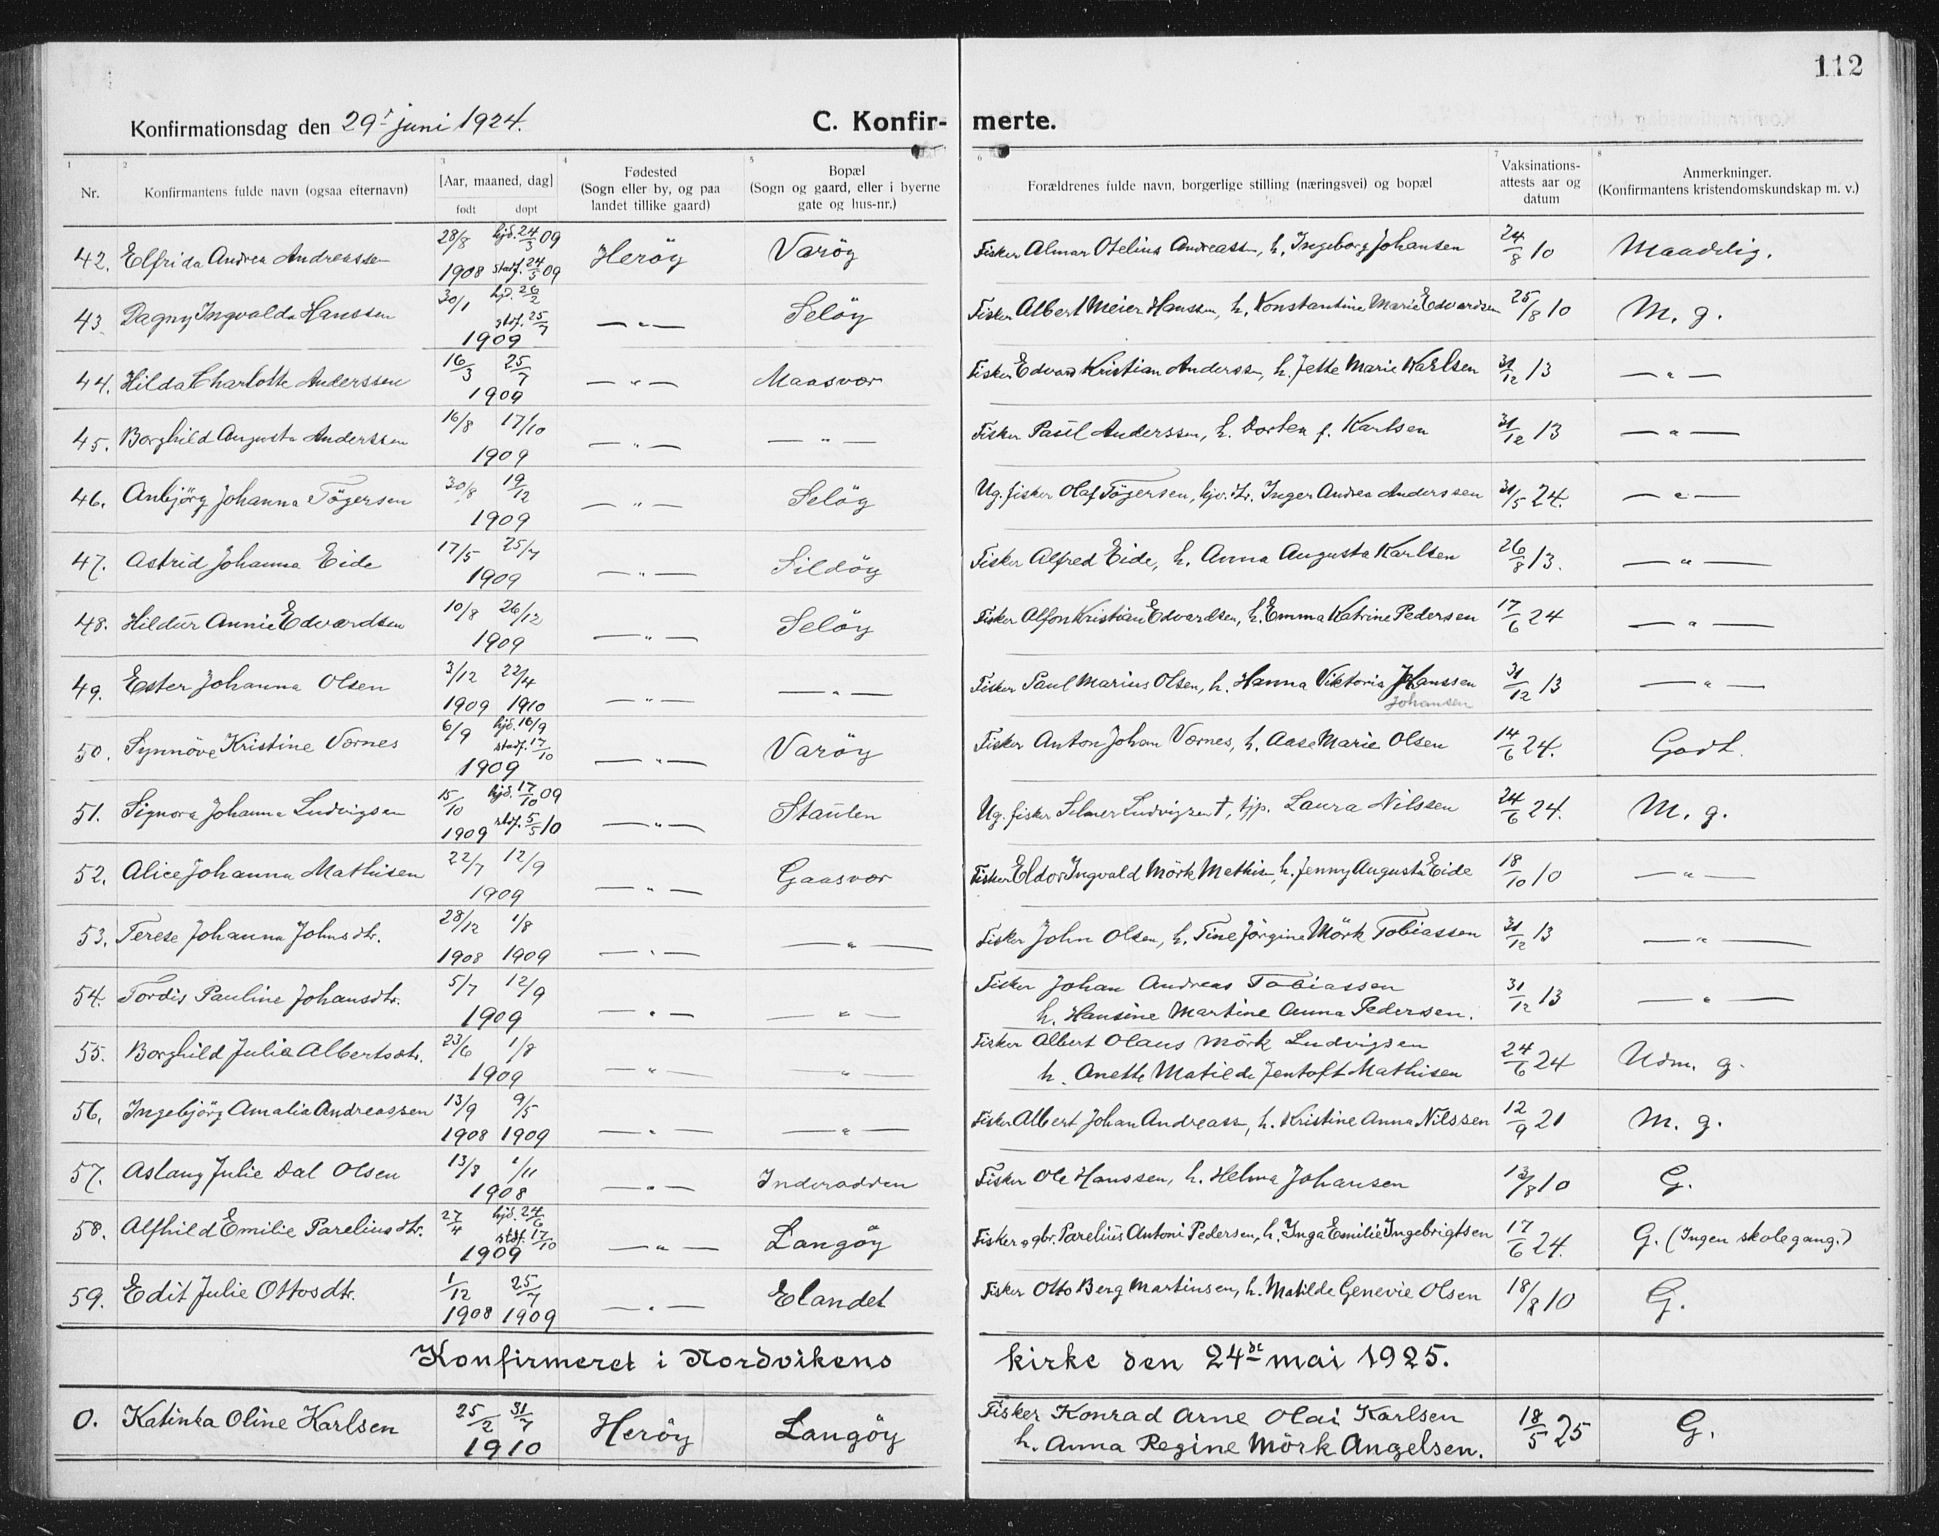 112
Konfirmationsdag den 29' juni 1924. C. Konfir- merte.
1 2 3 4 5 6 7 8
Nr. Konfirmantens fulde navn (ogsaa efternavn) [Aar, maaned, dag] født døpt Fødested (Sogn eller by, og paa landet tillike gaard) Bopæl (Sogn og gaard, eller i byerne gate og hus-nr.) Forældrenes fulde navn, borgerlige stilling (næringsvei) og bopæl Vaksinations-attests aar og datum Anmerkninger. (Konfirmantens kristendomskundskap m. v.)
42. Elfrida Andrea Andreassen 28/8 1908 hjd. 24/3 09 stadf. 24/5 09 Herøy Varøy Fisker Almar Otelius Andreassn, h. Ingeborg Johansen 24/8 10 Maadelig.
43. Dagny Ingvalda Hanssen 30/1 hjd. 26/2 stdf. 25/7 1909 — " — Seløy Fisker Albert Meier Hanssen, h. Konstantine Marie Edvardsen 25/8 10 M. g.
44. Hilda Charlotte Anderssen 16/3 25/7 1909 — " — Maasvær Fisker Edvard Kristian Anderssn, h. Jette Marie Karlsen 31/12 13 — " —
45. Borghild Augusta Anderssen 16/8 17/10 1909 — " — — " — Fisker Paul Anderssen, h. Dorten f. Karlsen 31/12 13 — " —
46. Anbjørg Johanna Tøgersen 30/8 19/12 1909 — " — Seløy Ug. fisker Olaf Tøgersen, Inger Andrea Anderssen 31/5 24. — " —
47. Astrid Johanna Eide 17/5 25/7 1909 — " — Sildøy Fisker Alfred Eide, h. Anna Augusta Karlsen 26/8 13. — " —
48. Hildur Annie Edvardsen 10/8 26/12 1909 — " — Seløy Fisker Alfon Kristian Edvardsen, h. Emma Katrine Pedersen 17/6 24 — " —
49. Ester Johanna Olsen 3/12 1909 22/4 1910 — " — — " — Fisker Paul Marius Olsen, h. Hanna Viktoria Hanssen Johansen 31/12 13 — " —
50. Synnöve Kristine Værnes 6/9 hjd. 16/9 stadf. 17/10 1909 — " — Varøy Fisker Anton Johan Værnes, h. Aase Marie Olsen 14/6 24. Godt.
51. Signora Johanna Ludvigsen 15/10 1909 hjd. 17/10 09 stdf. 5/5 10 — " — Staulen Ug. fisker Selmer Ludvigsen †, tjp. Laura Nilssen 24/6 24. M. g.
52. Alice Johanna Mathisen 22/7 12/9 1909 — " — Gaasvær Fisker Eldor Ingvald Mörk Mathisn, h. Jenny Augusta Eide 18/10 10 — " —
53. Terese Johanna Johnsdtr. 28/12 1908 1/8 1909 — " — — " — Fisker John Olsen, h. Tine Jørgine Mörk Tobiassen 31/12 13 — " —
54. Tordis Pauline Johansdtr. 5/7 12/9 1909 — " — — " — Fisker Johan Andreas Tobiassen
h. Hansine Martine Anna Pedersen. 31/12 13 — " —
55. Borghild Julie Albertsdtr. 23/6 1/8 1909 — " — — " — Fisker Albert Olaus Mörk Ludvigsen
h. Anette Matilde Jentoft Mathisen 24/6 24 Udm. g.
56. Ingebjörg Amalia Andreassen 13/9 1908 9/5 1909 — " — — " — Fisker Albert Johan Andreassn, h. Kristine Anna Nilssen 12/9 21 M. g.
57. Aslaug Julie Dal Olsen 13/8 1/11 1908 — " — Inderodden Fisker Ole Hanssen, h. Helma Johansen 13/8 10 G.
58. Alfhild Emilie Pareliusdtr. 27/4 hjd. 24/6 stdf. 17/10 1909 — " — Langøy Fisker o gbr. Parelius Antoni Pedersen, h. Inga Emilie Ingebrigtsen 17/6 24. G. (Ingen skolegang.)
59. Edit Julie Ottosdtr. 1/12 1908 25/7 1909 — " — Elandet Fisker Otto Berg Martinsen, h. Matilde Genevie Olsen 18/8 10 G.
Konfirmeret i Nordvikens kirke den 24de mai 1925.
0. Katinka Oline Karlsen 25/2 31/7 1910 Herøy Langøy Fisker Konrad Arne Olai Karlsen
h. Anna Regine Mörk Angelsen. 18/5 25 G.